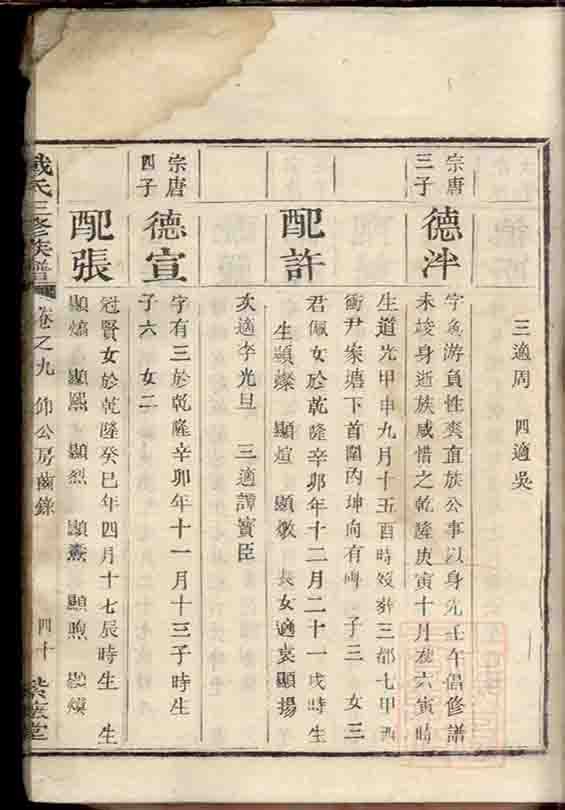 三適周 四適吳
宗唐三子
德泮
字魚游負性爽直族公事以身先壬午倡修譜
未竣身逝族咸惜之乾隆庚寅十月初六寅時
生道光甲申九月十五酉時歿葬三都七甲西
衝尹家塘下首圍內坤向有碑 子三 女三
配許
君佩女於乾隆辛卯年十二月二十一戌時生
生顯燦 顯煊 顯燉 長女適袁顯揚
次適李光旦 三適譚賓臣
宗唐四子
德宣
字有三於乾隆辛卯年十一月十三子時生
子六 女二
配張
冠賢女於乾隆癸巳年四月十七辰時生 生
顯熇 顯熙 顯烈 顯燾 顯煦 顯熯
戴氏三修族譜 卷之九 仰公房齒錄 四十 紫蓝堂